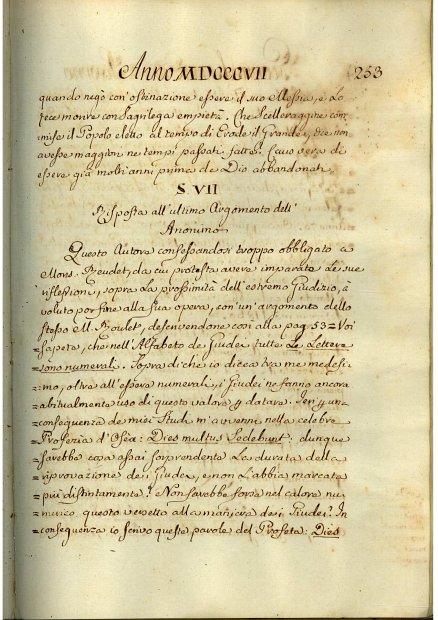 Anno MDCCCVII 253
quando negò con' ostinazione essere il suo Messia, e Lo
fece morire con sagrilega empietà. Che scelleraggine com
mise il Popolo eletto al tempo di Erode il Grande, che non
avesse maggiori ne tempi passati fatte?
essere già molti anni prima da Dio abbandonati.
S VII
Risposta all'ultimo Argomento dell'
Anonimo
Questo Autore confessandosi troppo obbligato a
Mons. da cui protesta avere imparato le sue
riflessioni, sopra La prossimità dell'estremo Giudizio, à
voluto por fine alla sua opera, con' un' argomento dello
stesso M. descrivendone così alla pag. 53 = Voi
= sapete, che nell'Alfabeto de Giudei tutte Le Lettere
= sono numerali. Sopra di che io diceva tra me medesi=
= mo, oltre all'essere numerali, i Giudei ne fanno ancora
= abitualmente uso di questo valore p datare. Per un
= conseguenza de miei Studi m'avvenni nella celebre
= Profezia d'Osea: Dies multus Sedebunt: dunque
= sarebbe cosa assai sorprendente La durata della
= riprovazione dei Giudei, e non L'abbia marcata
= più distintamente? Non sarebbe forse nel calore nu
= merico questo versetto alla maniera dei Giudei? In
= conseguenza io scrivo queste parole del Profeta: Dies